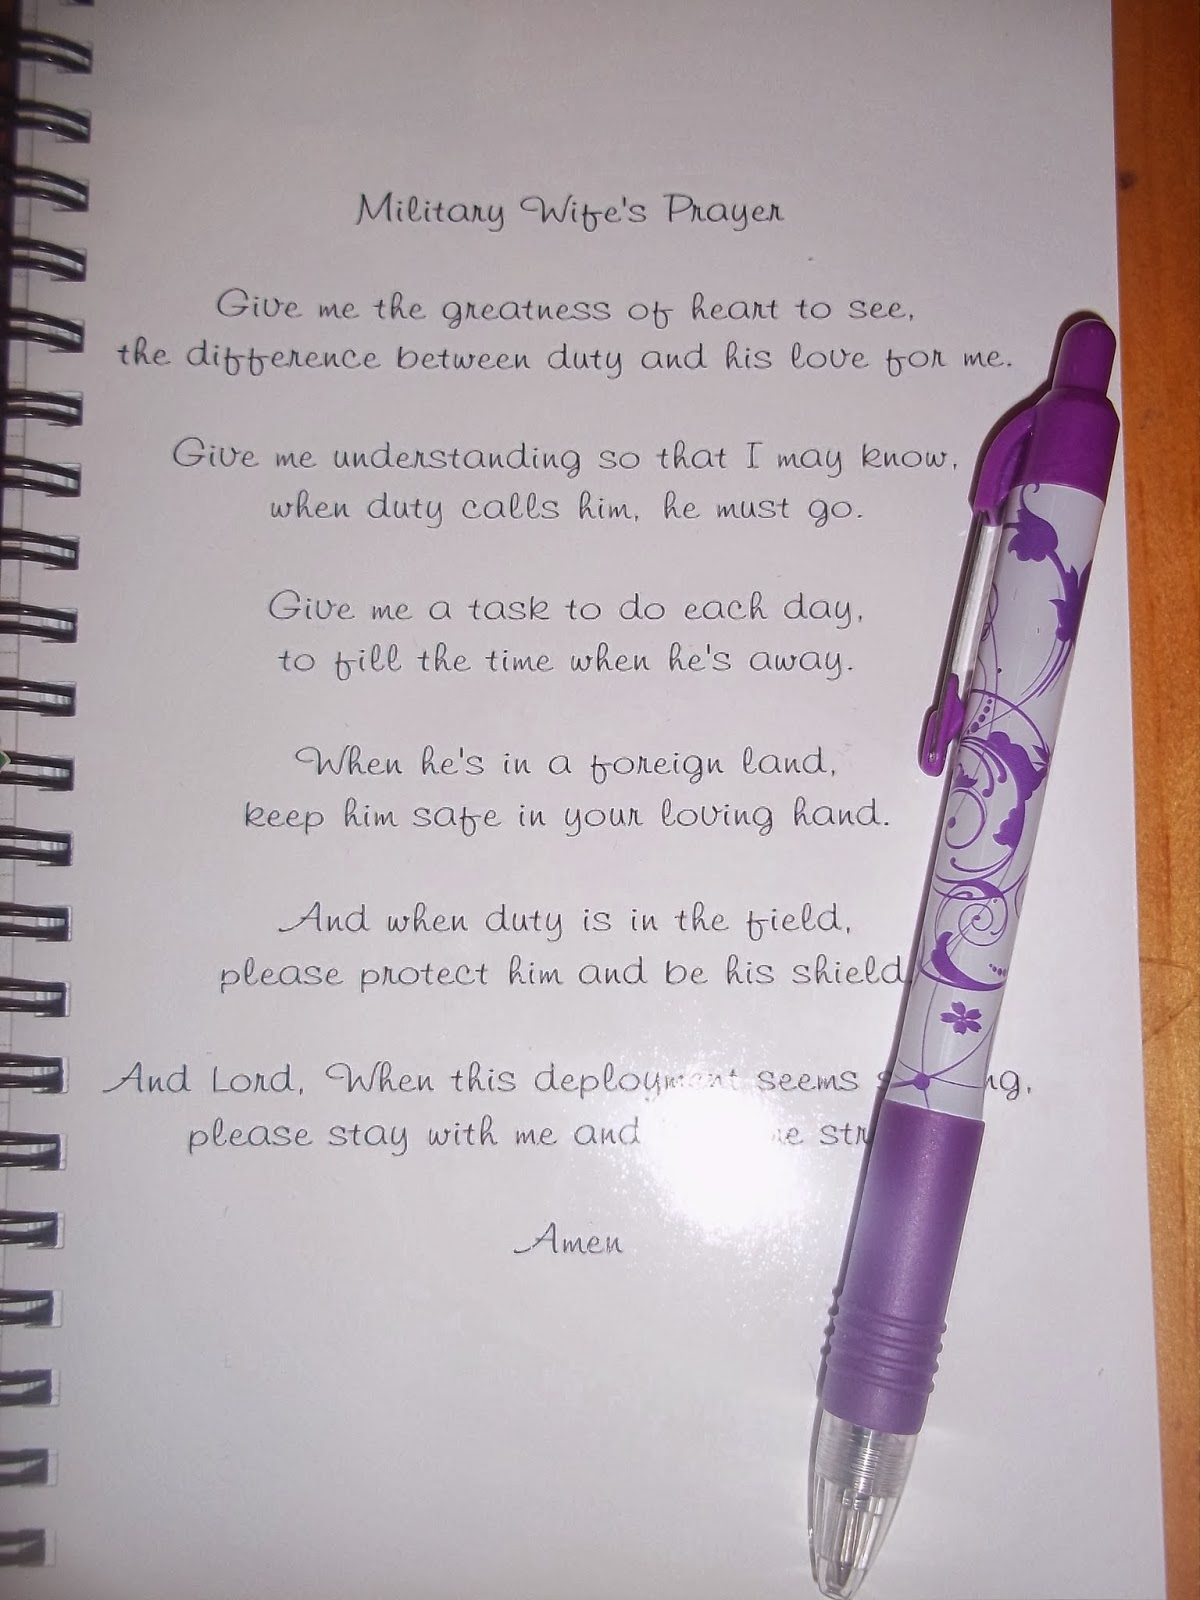 Military Wife's Prayer
Give me the greatness of heart to see,
the difference between duty and his love for me.
Give me understanding so that I may know,
when duty calls him, he must go.
Give me a task to do each day,
to fill the time when he's away.
When he's in a foreign land,
keep him safe in your loving hand.
And when duty is in the field,
please protect him and be his shield
And Lord, When this deployment seems
please stay with me and
Amen